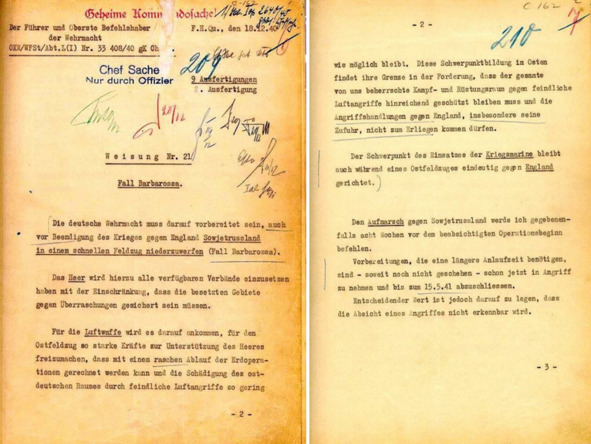 Geheime Kommandosache
Der Führer und Oberste Befehlshaber
der Wehrmacht
OKW/WFSt/Abt.L(I) Nr. 33 408/40 gK Ch
F.H.Qu., den 18.12.40
Chef Sache
Nur durch Offizier
209
9 Ausfertigungen
2. Ausfertigung
Weisung Nr. 21
Fall Barbarossa.
Die deutsche Wehrmacht muss darauf vorbereitet sein, auch
vor Beendigung des Krieges gegen England Sowjetrussland
in einem schnellen Feldzug niederzuwerfen (Fall Barbarossa).
Das Heer wird hierzu alle verfügbaren Verbände einzusetzen
haben mit der Einschränkung, dass die besetzten Gebiete
gegen Überraschungen gesichert sein müssen.
Für die Luftwaffe wird es darauf ankommen, für den
Ostfeldzug so starke Kräfte zur Unterstützung des Heeres
freizumachen, dass mit einem raschen Ablauf der Erdopera-
tionen gerechnet werden kann und die Schädigung des ost-
deutschen Raumes durch feindliche Luftangriffe so gering
- 2 -
- 2 -
C 162
210
wie möglich bleibt. Diese Schwerpunktbildung im Osten
findet ihre Grenze in der Forderung, dass der gesamte
von uns beherrschte Kampf- und Rüstungsraum gegen feindliche
Luftangriffe hinreichend geschützt bleiben muss und die
Angriffshandlungen gegen England, insbesondere seine
Zufuhr, nicht zum Erliegen kommen dürfen.
Der Schwerpunkt des Einsatzes der Kriegsmarine bleibt
auch während eines Ostfeldzuges eindeutig gegen England
gerichtet.
Den Aufmarsch gegen Sowjetrussland werde ich gegebenen-
falls acht Wochen vor dem beabsichtigten Operationsbeginn
befehlen.
Vorbereitungen, die eine längere Anlaufzeit benötigen,
sind - soweit noch nicht geschehen - schon jetzt in Angriff
zu nehmen und bis zum 15.5.41 abzuschliessen.
Entscheidender Wert ist jedoch darauf zu legen, dass
die Absicht eines Angriffes nicht erkennbar wird.
- 3 -